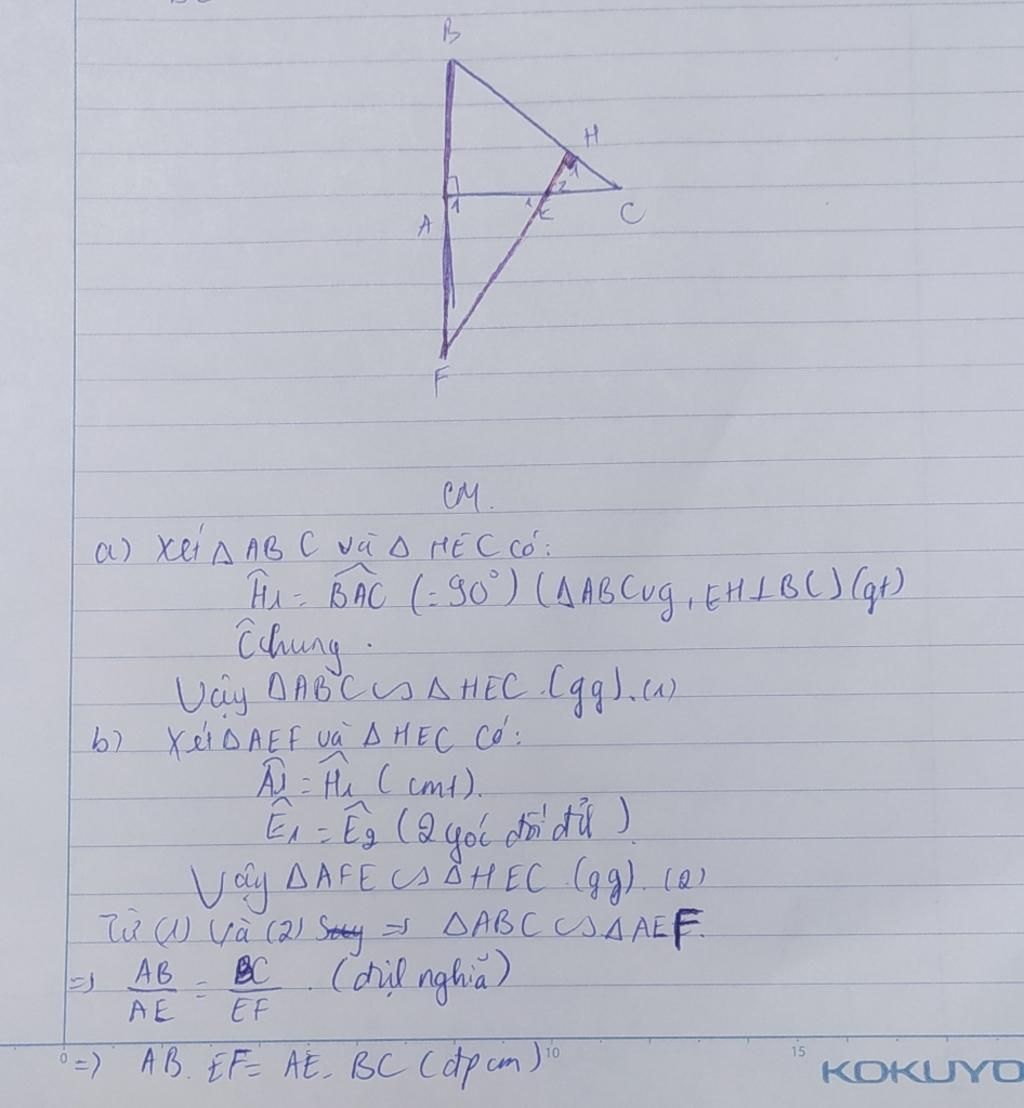 B
H
1
2
1
1
E
A
C
F
CM.
a) Xét Δ ABC và Δ HEC có:
Ĥ₁ = BAC (=90°) (ΔABC vg, EH⊥BC) (gt)
Ĉ chung.
Vậy ΔABC ∽ ΔHEC (gg). (1)
b) Xét ΔAEF và ΔHEC có:
Â₁ = Ĥ₁ (cmt).
Ê₁ = Ê₂ (2 góc đối đỉ)
Vậy ΔAFE ∽ ΔHEC (gg). (2)
Từ (1) và (2) => ΔABC ∽ ΔAEF.
=> AB/AE = BC/EF. (nghiã)
=> AB. EF = AE. BC (đpcm)
0 10 15
KOKUYO